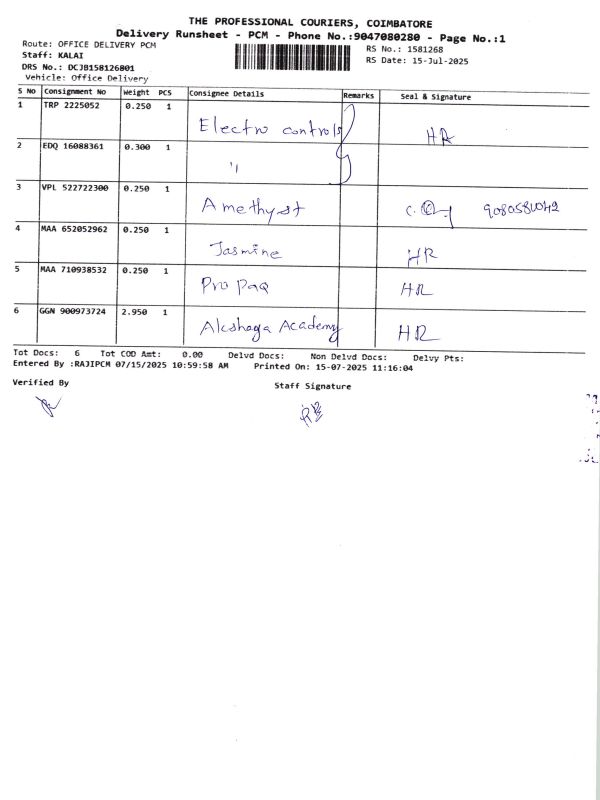 THE PROFESSIONAL COURIERS, COIMBATORE
Delivery Runsheet - PCM - Phone No.:9047080280 - Page No.:1
Route: OFFICE DELIVERY PCM
RS No.: 1581268
Staff: KALAI
RS Date: 15-Jul-2025
DRS No.: DCJB158126801
Vehicle: Office Delivery
S No Consignment No Weight PCS Consignee Details Remarks Seal & Signature
1 TRP 2225052 0.250 1 Electro controls HR
2 EDQ 16088361 0.300 1 "
3 VPL 522722300 0.250 1 Amethyst
4 MAA 652052962 0.250 1 Jasmine HR
5 MAA 710938532 0.250 1 Pro paq HR
6 GGN 900973724 2.950 1 Akshaga Academy HR
Tot Docs: 6 Tot COD Amt: 0.00 Delvd Docs: Non Delvd Docs: Delvy Pts:
Entered By :RAJIPCM 07/15/2025 10:59:58 AM Printed On: 15-07-2025 11:16:04
Verified By
Staff Signature